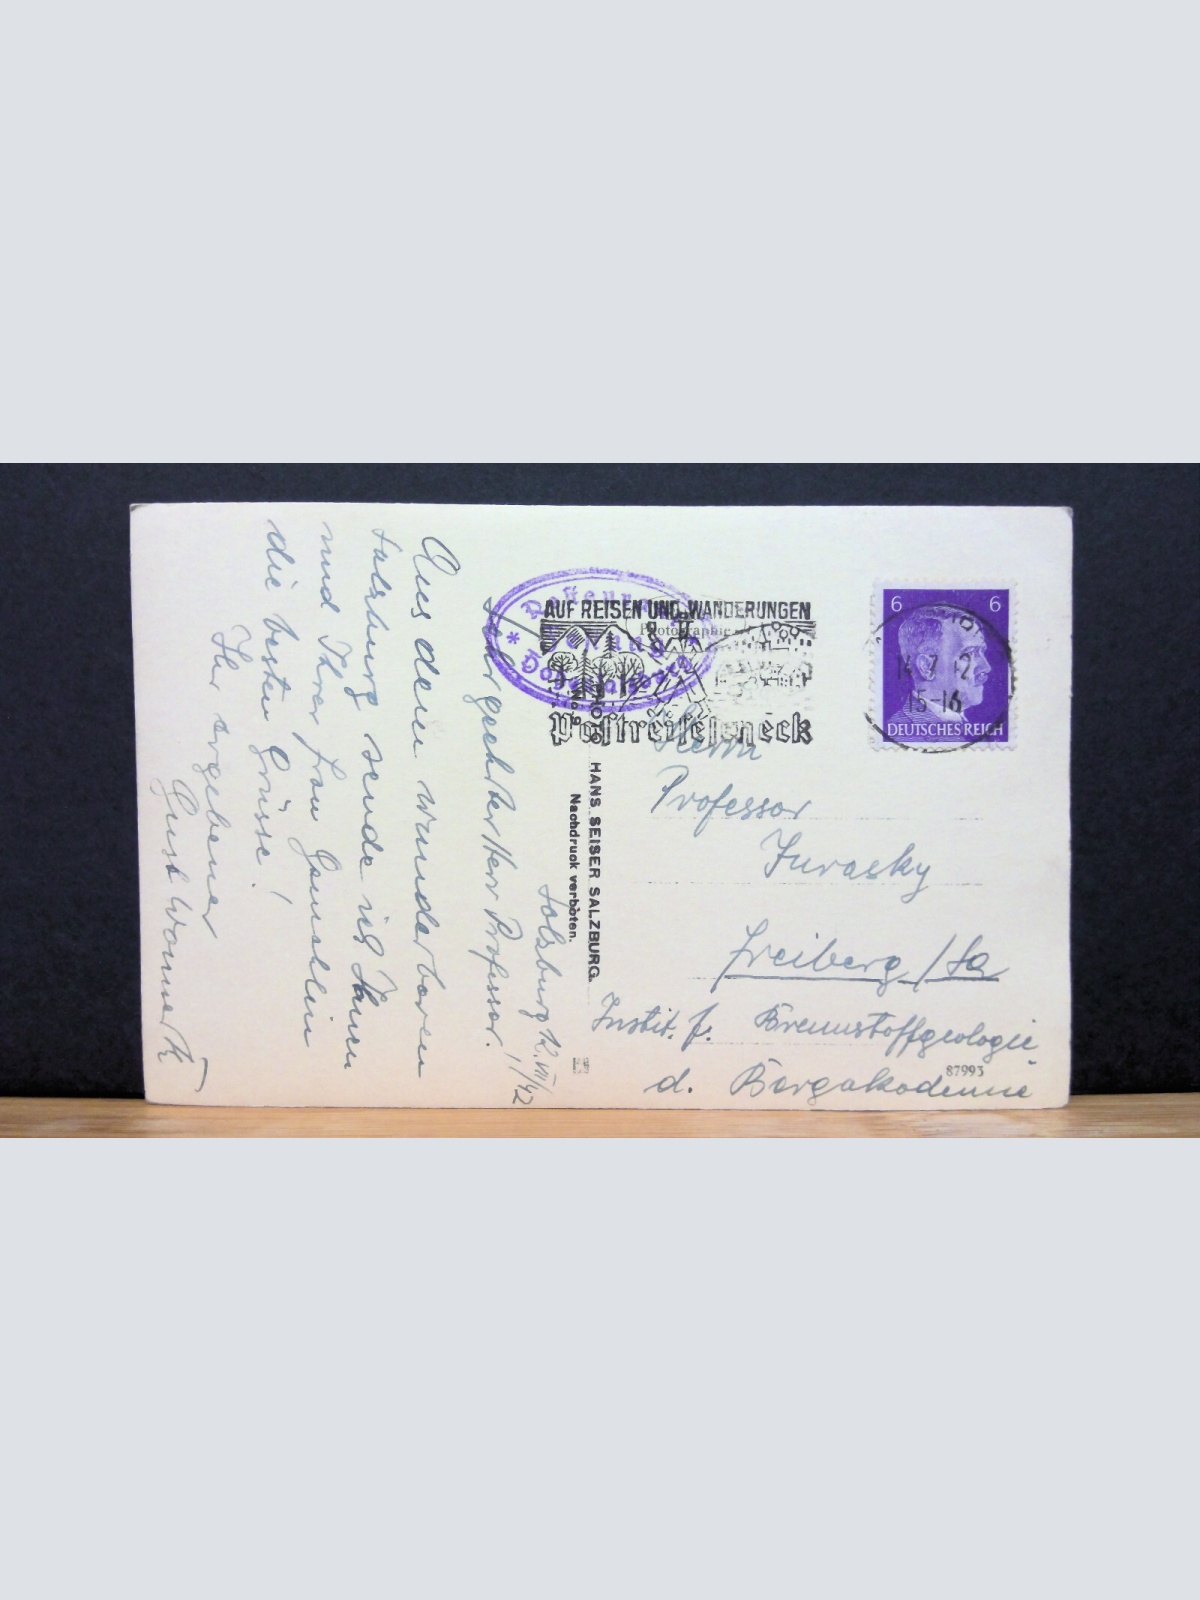 Salzburg 12.VII/42
Sehr geehrter Herr Professor!
Aus dem wunderbaren
Salzburg sende ich Ihnen
und Ihrer Frau Gemahlin
die besten Grüsse!
Ihr ergebener
Gust
PHOTO HANS SEISER SALZBURG.
Nachdruck verboten.
AUF REISEN UND WANDERUNGEN
Photographie
Postreisescheck
6 6
14.7.42
15-16
DEUTSCHES REICH
Herrn
Professor
Jurasky
Freiberg / Sa
Instit. f. Brennstoffgeologie
d. Bergakademie
87993